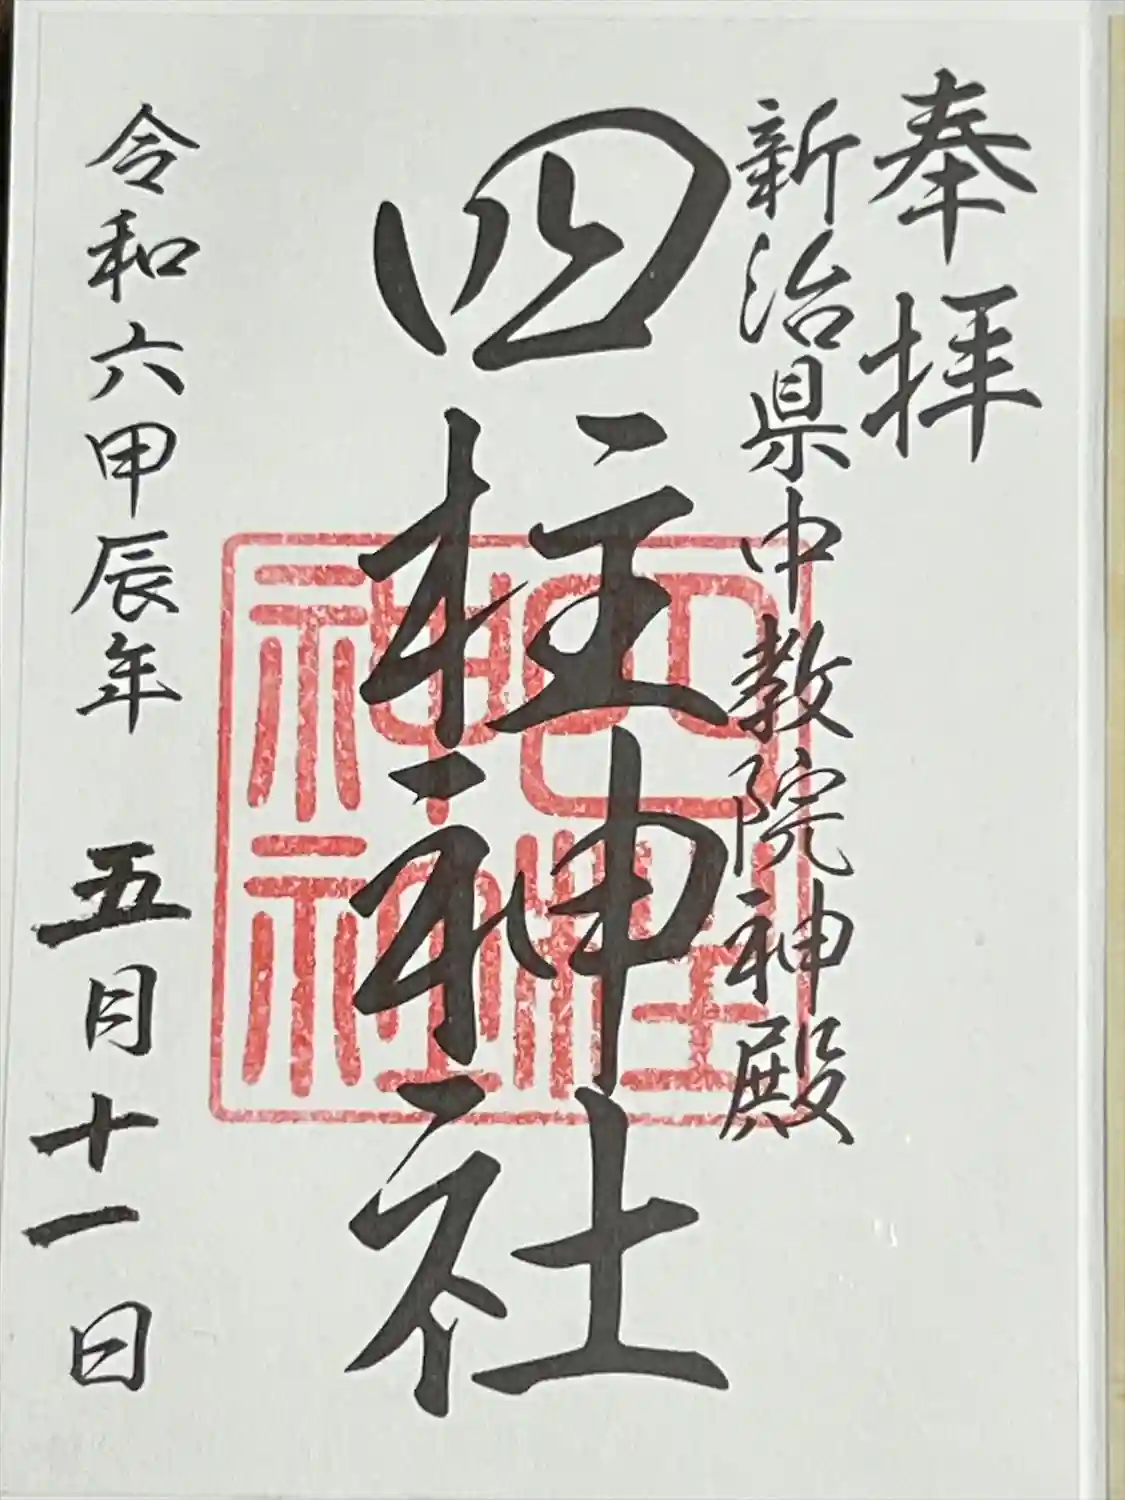 奉拝
新治県中教院神殿
四柱神社
四柱
神社
令和六甲辰年 五月十一日